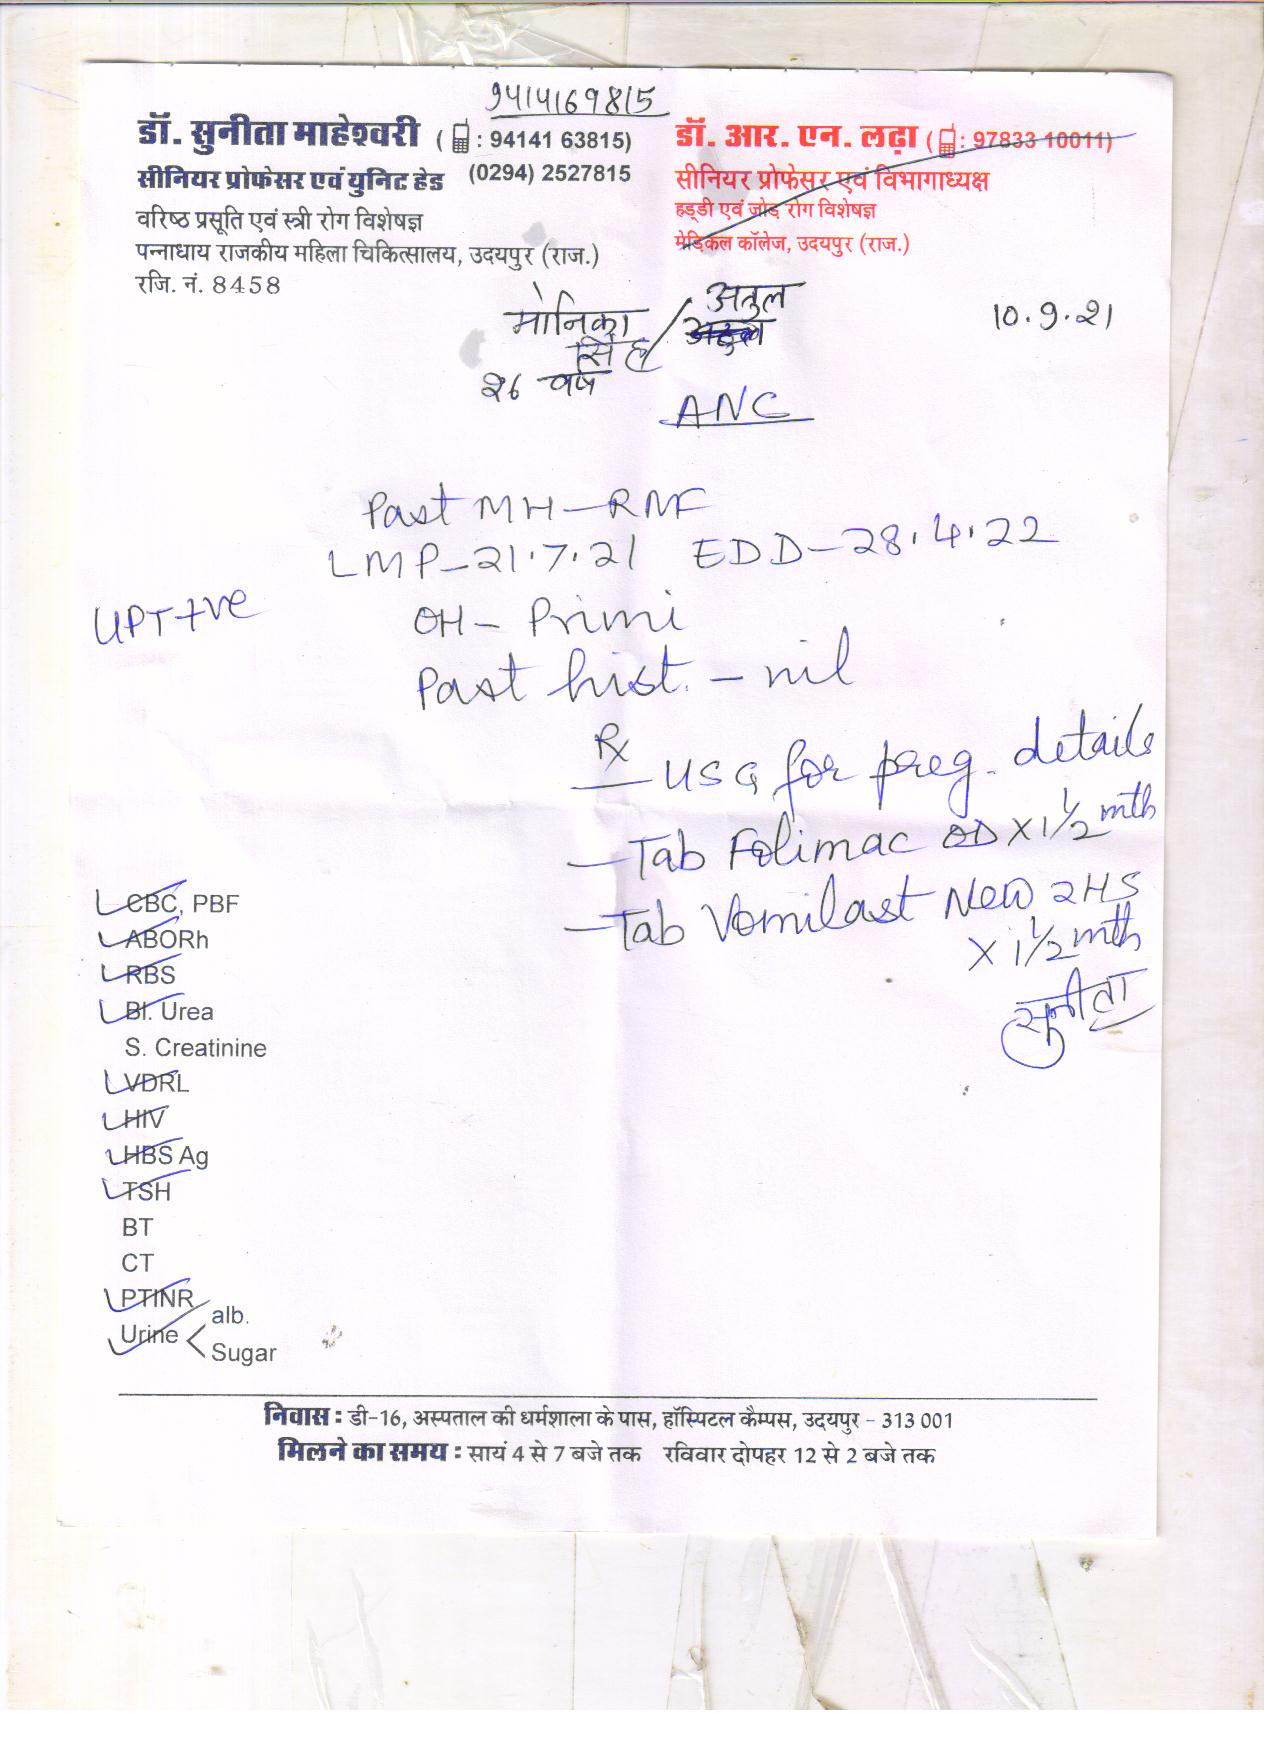 9414169815
डॉ. सुनीता माहेश्वरी ( : 94141 63815)
सीनियर प्रोफेसर एवं युनिट हेड (0294) 2527815
वरिष्ठ प्रसूति एवं स्त्री रोग विशेषज्ञ
पन्नाधाय राजकीय महिला चिकित्सालय, उदयपुर (राज.)
रजि. नं. 8458
डॉ. आर. एन. लढ़ा ( : 97833 10011)
सीनियर प्रोफेसर एवं विभागाध्यक्ष
हड्डी एवं जोड़ रोग विशेषज्ञ
मेडिकल कॉलेज, उदयपुर (राज.)
मोनिका / अतुल
सिंह
26 वर्ष
10.9.21
ANC
Past MH - RNF
LMP - 21.7.21 EDD - 28.4.22
UPT +ve OH - Primi
Past hist. - nil
Rx
- USG for preg. details
- Tab Folimac OD X 1 1/2 mth
- Tab Vomilast New 2HS
X 1 1/2 mth
सुनीता
CBC, PBF
ABORh
RBS
Bl. Urea
S. Creatinine
VDRL
HIV
HBS Ag
TSH
BT
CT
PTINR
Urine < alb.
Sugar
निवास : डी-16, अस्पताल की धर्मशाला के पास, हॉस्पिटल कैम्पस, उदयपुर - 313 001
मिलने का समय : सायं 4 से 7 बजे तक रविवार दोपहर 12 से 2 बजे तक